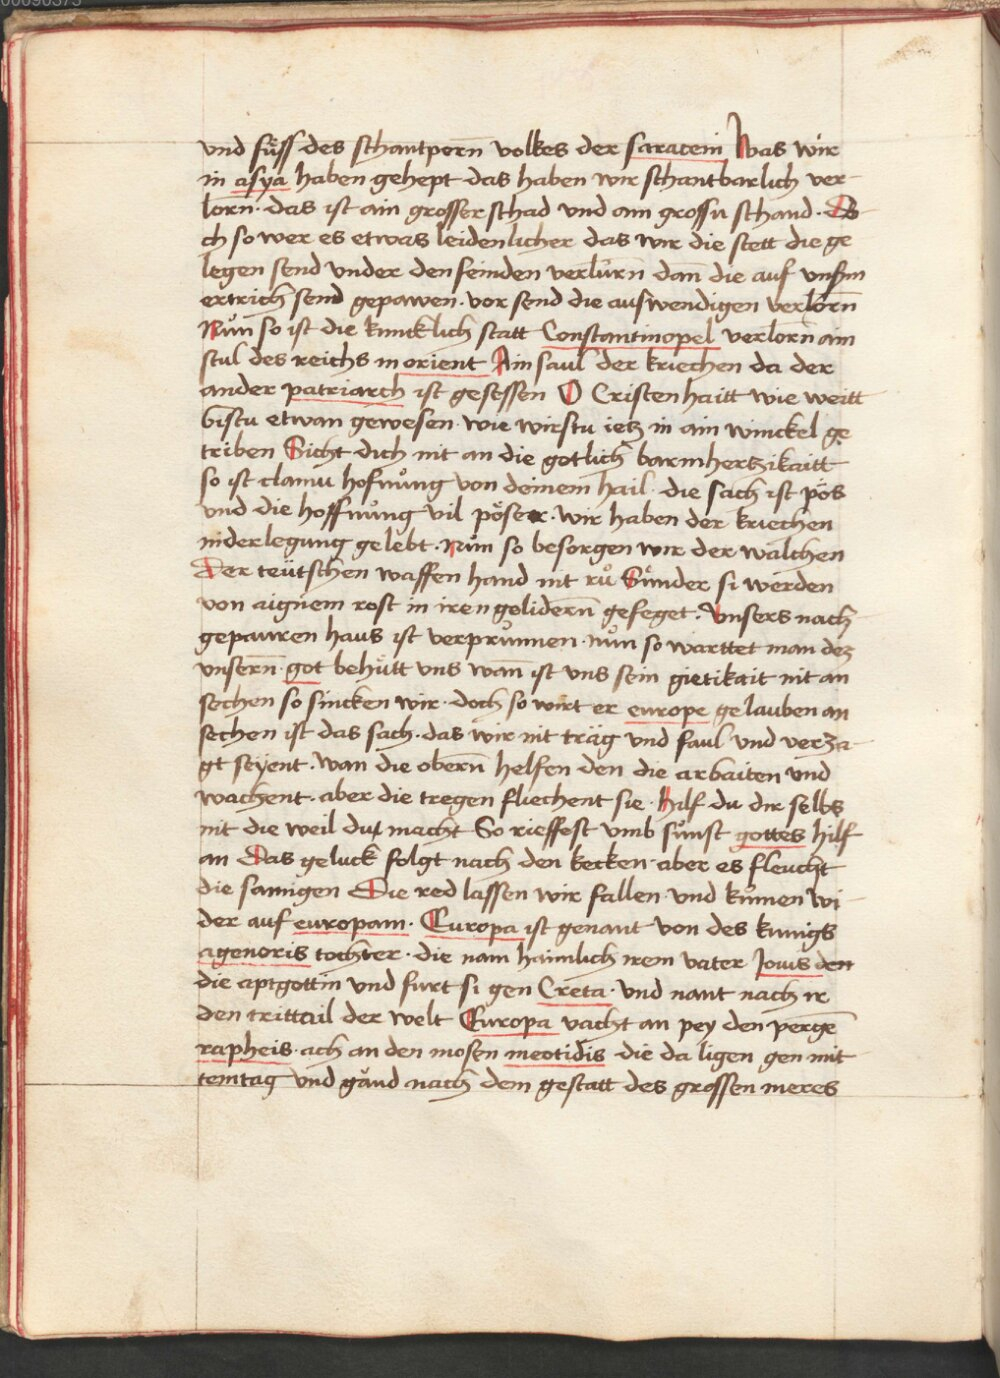 00090373
vnd füss des schantpern̄ volkes der saraceni Was wir
in asya haben gehept das haben wir schantbarlich ver-
lorn· das ist ain grosser schad vnd ain grossu schand· Do
ch so wer es etwas leidenlicher das wir die stett die ge
legen send vnder den feinden verlurn̄ dan̄ die auf vnsṃ
ertrich send gepawen· vor send die auswendigen verlorn̄
Nůn so ist die kuncklich statt Constantinopel verlorn ain
stul des reichs in orient Ain saul der kriechen da der
ander patriarch ist gesessen O Cristenhaitt wie weitt
bistu etwan gewesen· wie wirstu ietz in ain winckel ge
triben Sicht dich nit an die gotlich barmhertzikaitt
so ist clainu hofnůng von deinem hail· die sach ist pös
vnd die hoffnůng vil pöser· wir haben der kriechen
niderlegung gelebt· Nůn so besorgen wir der walchen
Der teütschen waffen hand nit rů Sůnder si werden
von aignem rost in iren gelidern̄ gefeget· Vnsers nach
gepauren haus ist verprůnnen· nůn so warttet man dez
vnsern̄· got behütt vns wan̄ ist vns sein gietikait nit an
sechen so sincken wir· doch so wirt er europe gelauben an
sechen ist das sach· das wir nit träg vnd faul vnd verza-
gt seyent· wan die obern̄ helfen den die arbaiten vnd
wachent· aber die tregen fliechent sie· Hilf du dir selbs
nit die weil du macht So rieffest vmb sůnst gottes hilf
an Das geluck folgt nach den kecken· aber es fleucht
die samigen Die red lassen wir fallen vnd kůmen wi
der auf europam· Europa ist genant von des kunigs
agenoris tochter· die nam haimlich irem vater Jovis den
die aptgottin vnd furt si gen Creta· vnd nant nach ir
den trittail der welt Europa vacht an pey den pergē
rapheis· ach an den mosen meotidis die da ligen gen mit
temtag vnd gänd nach dem gestatt des grossen meres